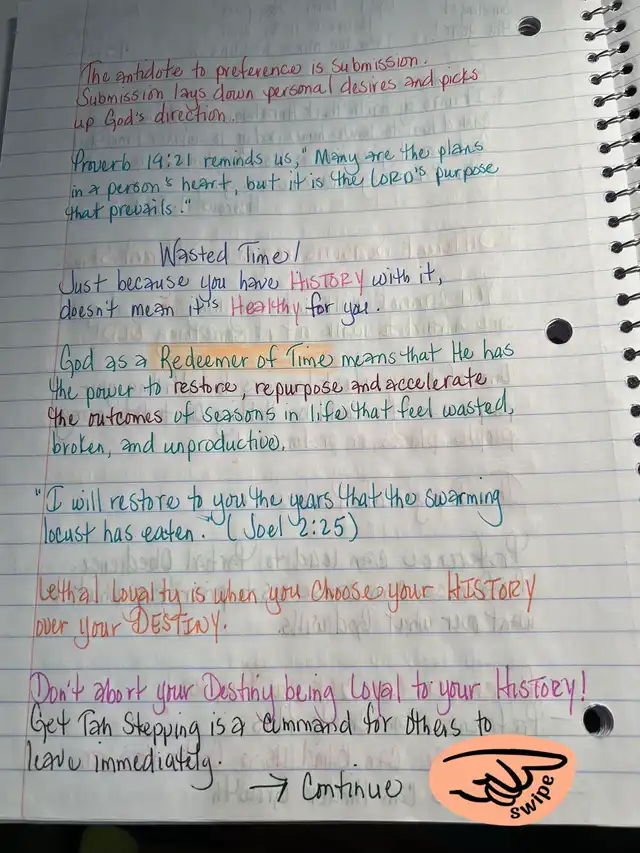 The antidote to preference is submission.
Submission lays down personal desires and picks
up God's direction.
Proverb 19:21 reminds us, "Many are the plans
in a person's heart, but it is the LORD's purpose
that prevails."
Wasted Time!
Just because you have HISTORY with it,
doesn't mean it's Healthy for you.
God as a Redeemer of Time means that He has
the power to restore, repurpose and accelerate
the outcomes of seasons in life that feel wasted,
broken, and unproductive.
"I will restore to you the years that the swarming
locust has eaten." (Joel 2:25)
Lethal Loyalty is when you choose your HISTORY
over your DESTINY.
Don't abort your Destiny being Loyal to your HISTORY!
Get Tah Stepping is a command for others to
leave immediately.
→ Continue
swipe